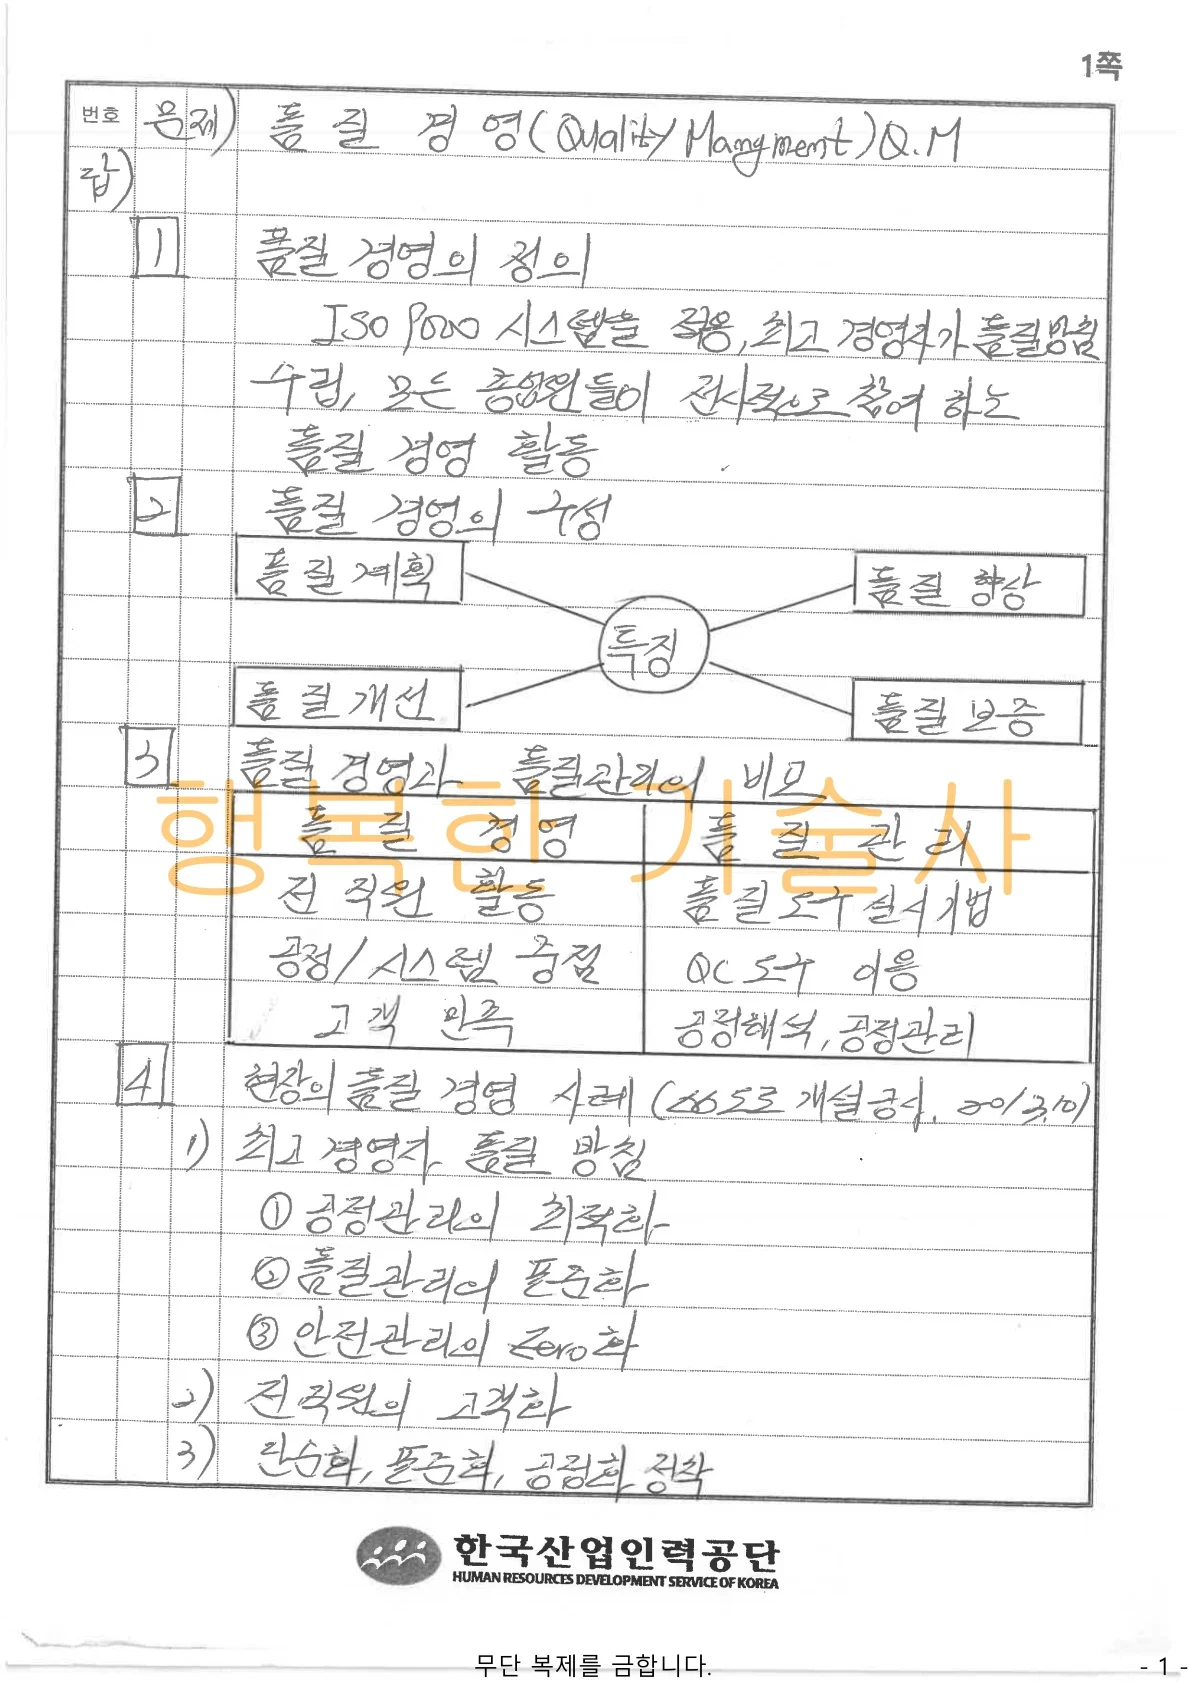 1쪽
번호 문제) 품 질 경 영(Quality Mangment)Q.M
답)
1 품질 경영의 정의
ISO 9000 시스템을 적용, 최고 경영자가 품질방침
수립, 모든 종업원들이 전사적으로 참여 하는
품질 경영 활동
2 품질 경영의 구성
품질계획 품질 향상
특징
품질개선 품질 보증
3 품질 경영과 품질관리의 비교
행복한 기술사
품 질 경 영 품 질 관 리
전 직원 활동 품질도구 실시기법
공정/시스템 중점 QC도구 이용
고객 만족 공정해석, 공정관리
4 현장의 품질 경영 사례 (도로개설공사,
1) 최고 경영자 품질 방침
① 공정관리의 최적화
② 품질관리의 표준화
③ 안전관리의 Zero화
2) 전직원의 고객화
3) 단순화, 표준화, 정착
한국산업인력공단
HUMAN RESOURCES DEVELOPMENT SERVICE OF KOREA
무단 복제를 금합니다.
- 1 -